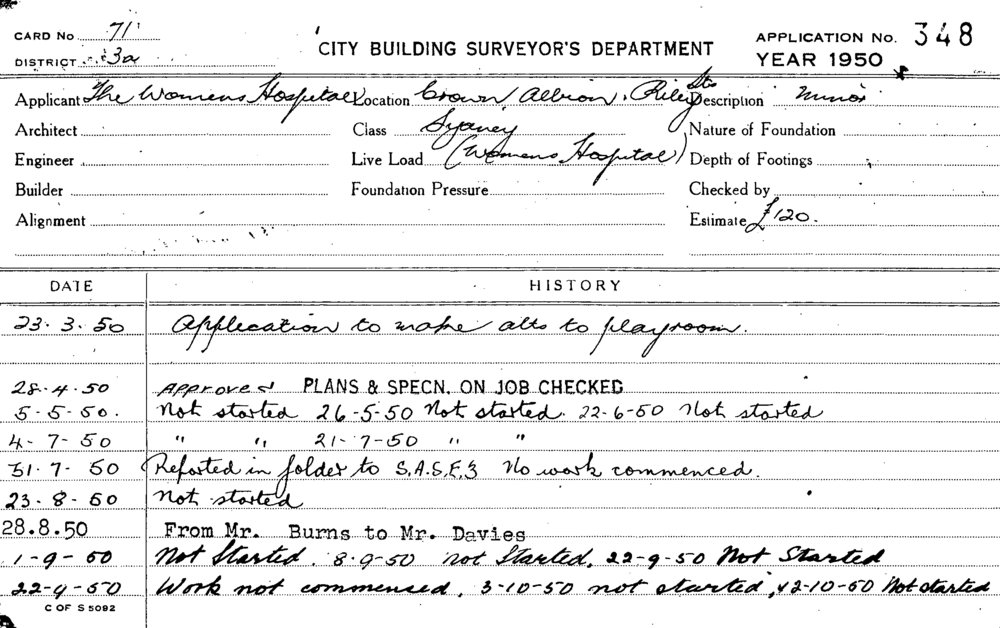 CARD No 71
DISTRICT 3a
CITY BUILDING SURVEYOR'S DEPARTMENT
APPLICATION No. 348
YEAR 1950
Applicant The Womens Hospital Location Crown, Albion, Riley Sts Description minor
Architect Class Sydney Nature of Foundation
Engineer Live Load (Womens Hospital) Depth of Footings
Builder Foundation Pressure Checked by
Alignment Estimate £120.
DATE HISTORY
23.3.50 Application to make alts to playroom.
28.4.50 Approved PLANS & SPECN. ON JOB CHECKED
5-5-50. Not started 26-5-50 Not started. 22-6-50 Not started
4-7-50 " " 21-7-50 " "
31.7.50 Reported in folder to S.A.S.E.3 No work commenced.
23.8.50 Not started
28.8.50 From Mr. Burns to Mr. Davies
1-9-50 Not Started. 8-9-50 not Started, 22-9-50 Not Started
22-9-50 Work not commenced, 3-10-50 not started, 12-10-50 Not started
C OF S 5092